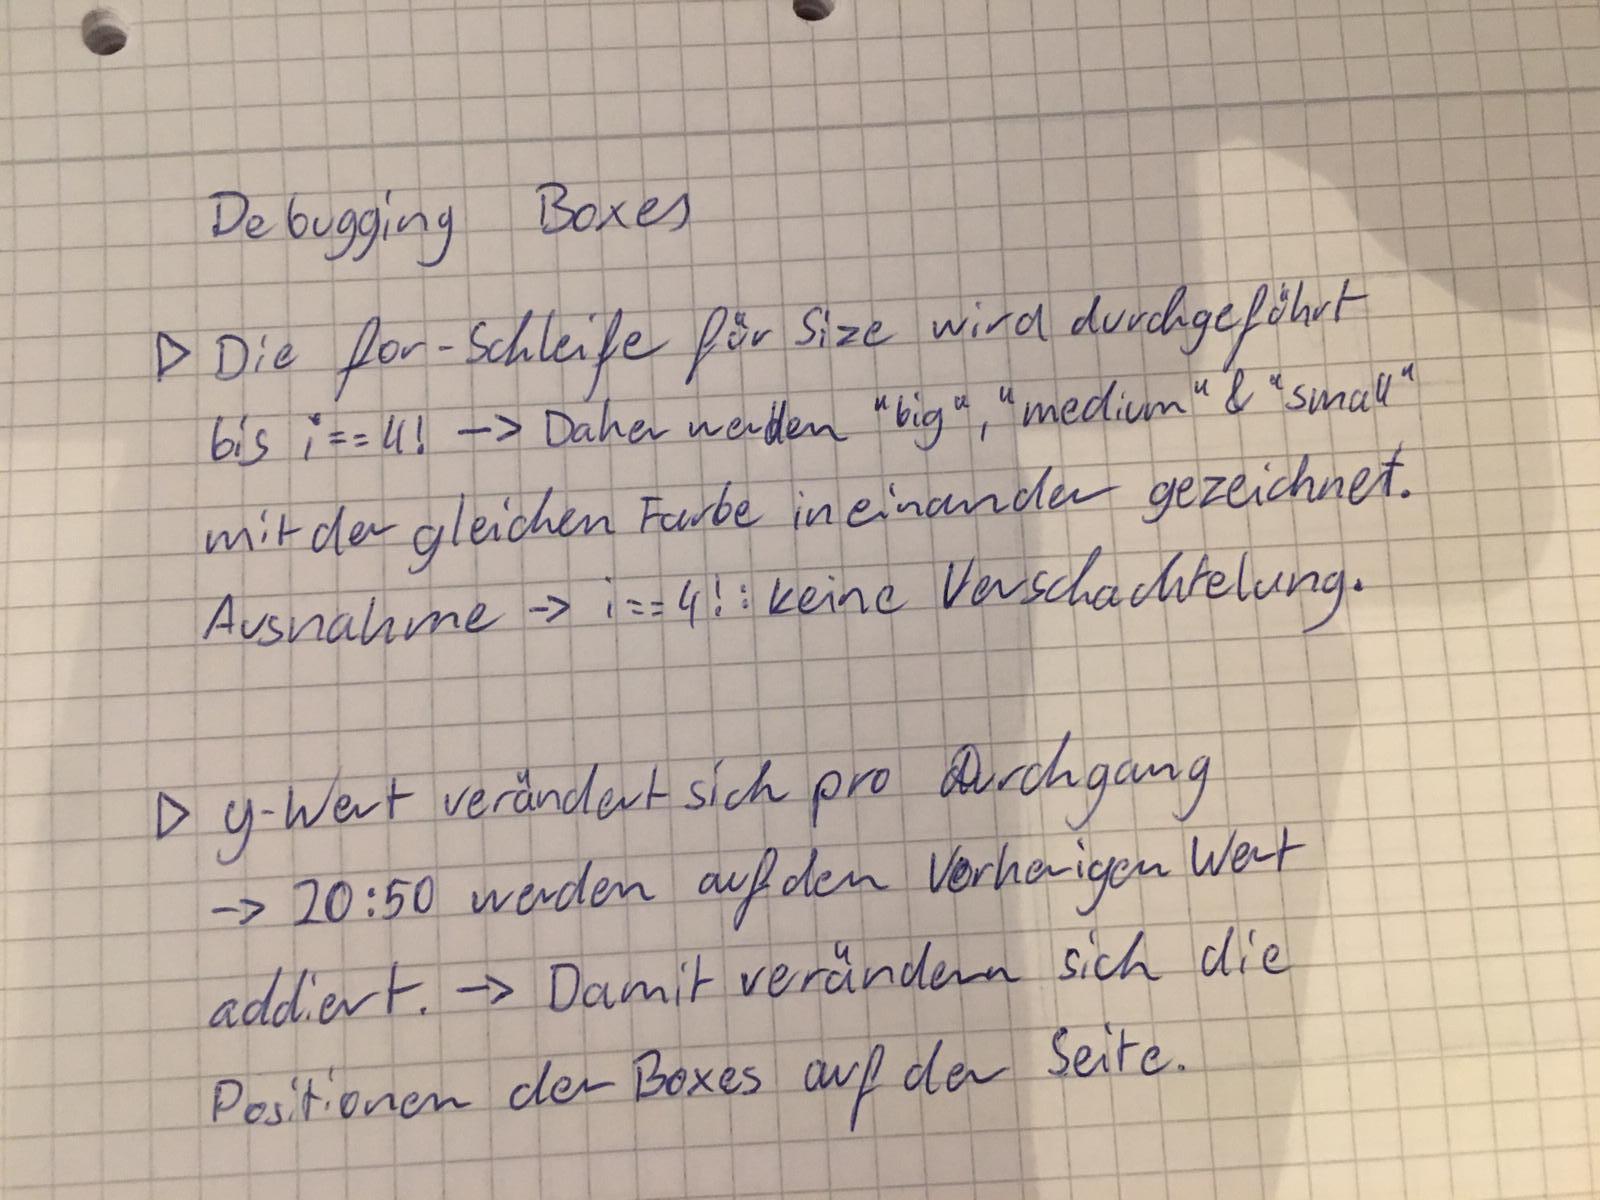 Debugging Boxes
▷ Die for-Schleife für Size wird durchgeführt
bis i==4! -> Daher werden "big", "medium" & "small"
mit der gleichen Farbe ineinander gezeichnet.
Ausnahme -> i==4!: keine Verschachtelung.
▷ y-Wert verändert sich pro Durchgang
-> 20:50 werden auf den Vorherigen Wert
addiert. -> Damit verändern sich die
Positionen der Boxes auf der Seite.